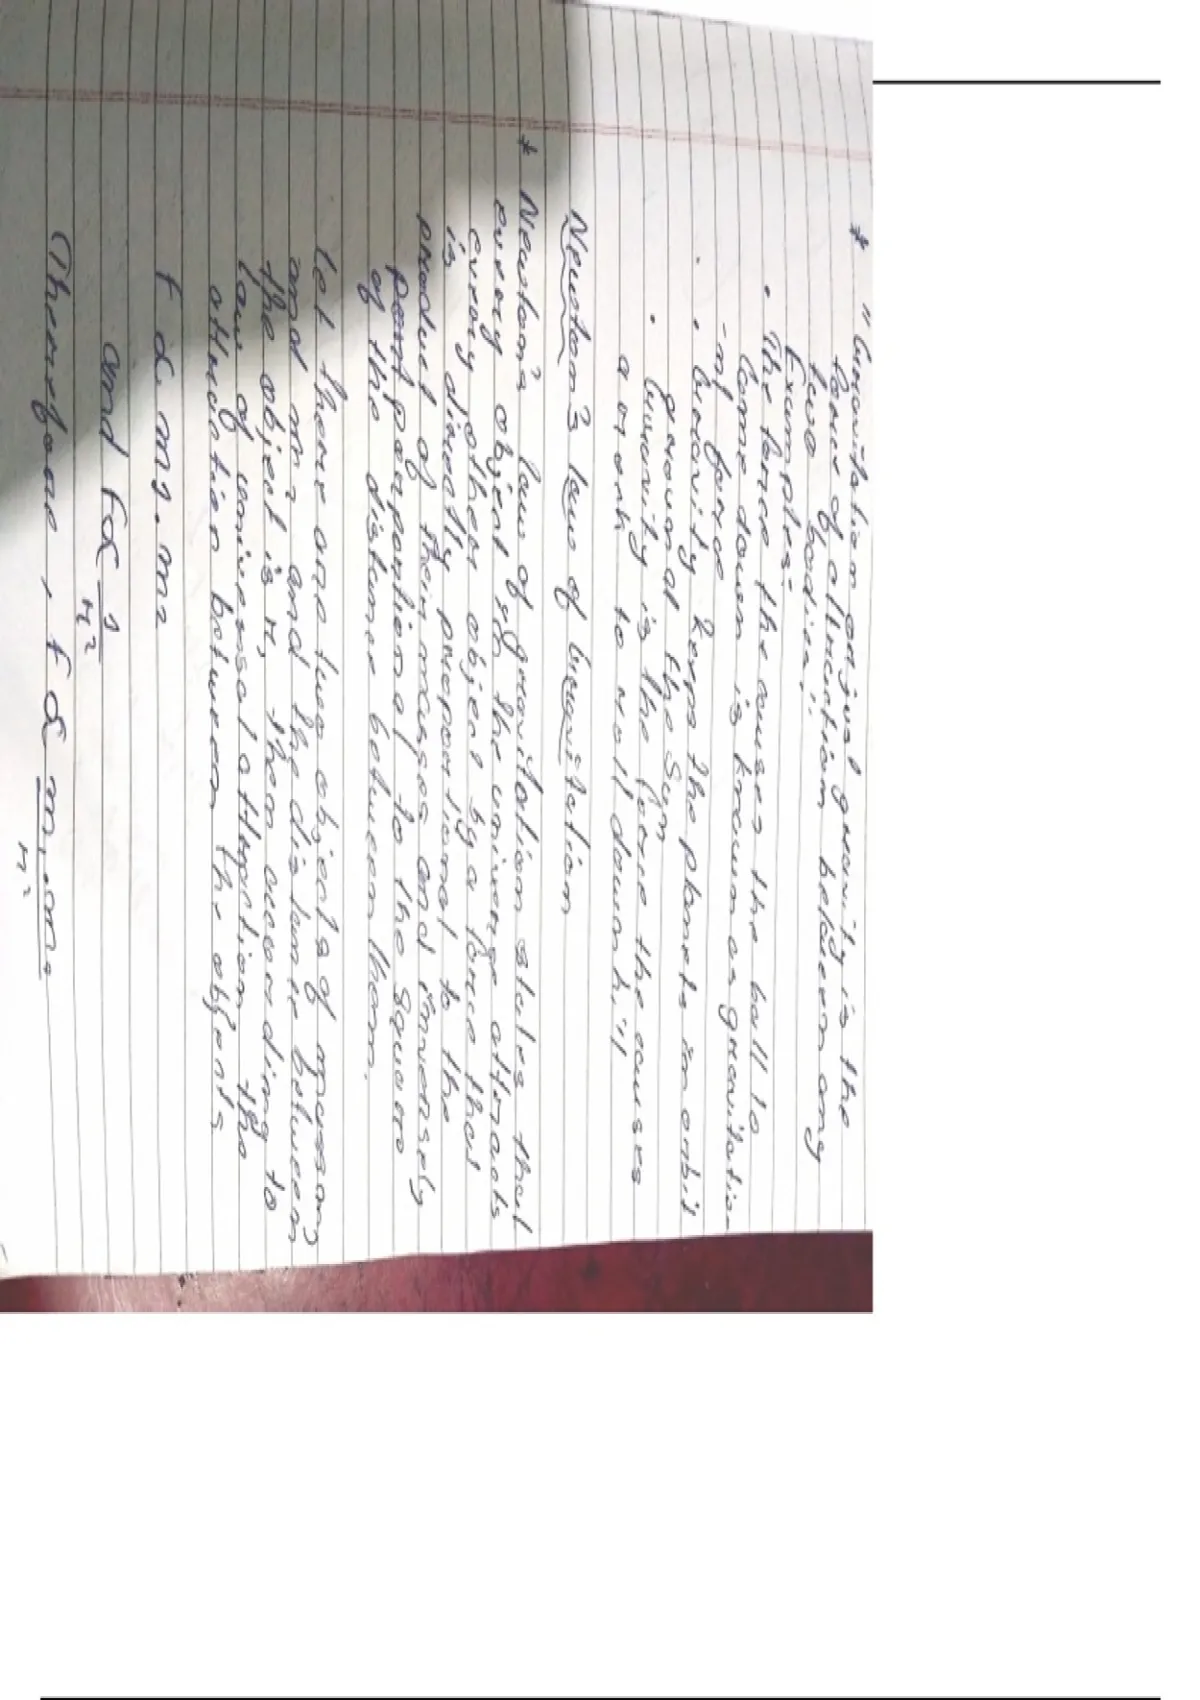 * "Gravitation or just gravity is the
force of attraction between any
two bodies".
Examples:
• The force the causes the ball to
come down is known as gravitatio-
-nal force
• Gravity keeps the planets in orbit
around the Sun
• Gravity is the force the causes
a to roll downhill
Newton's law of Gravitation
* Newton's law of gravitation states that
every object in the universe attracts
every other object by a force that
is directly proportional to the
product of their masses and inversely
porportional to the square
of the distance between them.
let there are two objects of masses m1
and m2 and the distance between
the object is r, then according to
law of universal attraction the
attraction between the objects
F ∝ m1.m2
and F ∝ 1/r²
Therefore, F ∝ m1.m2/r²